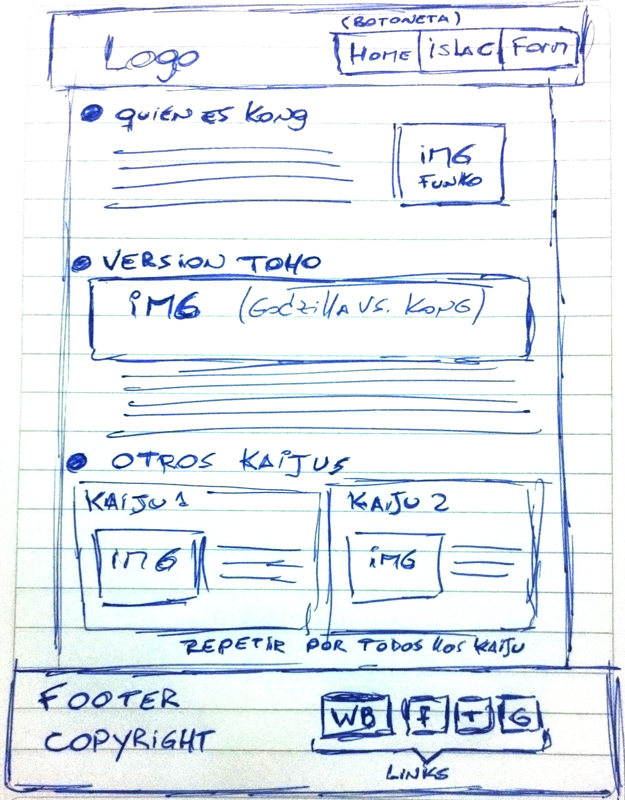 (BOTONETA)
Logo
HOME
ISLAC
FORM
QUIÉN ES KONG
IMG
FUNKO
VERSION TOHO
IMG (GODZILLA VS. KONG)
OTROS KAIJUS
KAIJU 1
KAIJU 2
IMG
IMG
REPETIR POR TODOS LOS KAIJU
FOOTER
COPYRIGHT
WB
F
T
G
LINKS